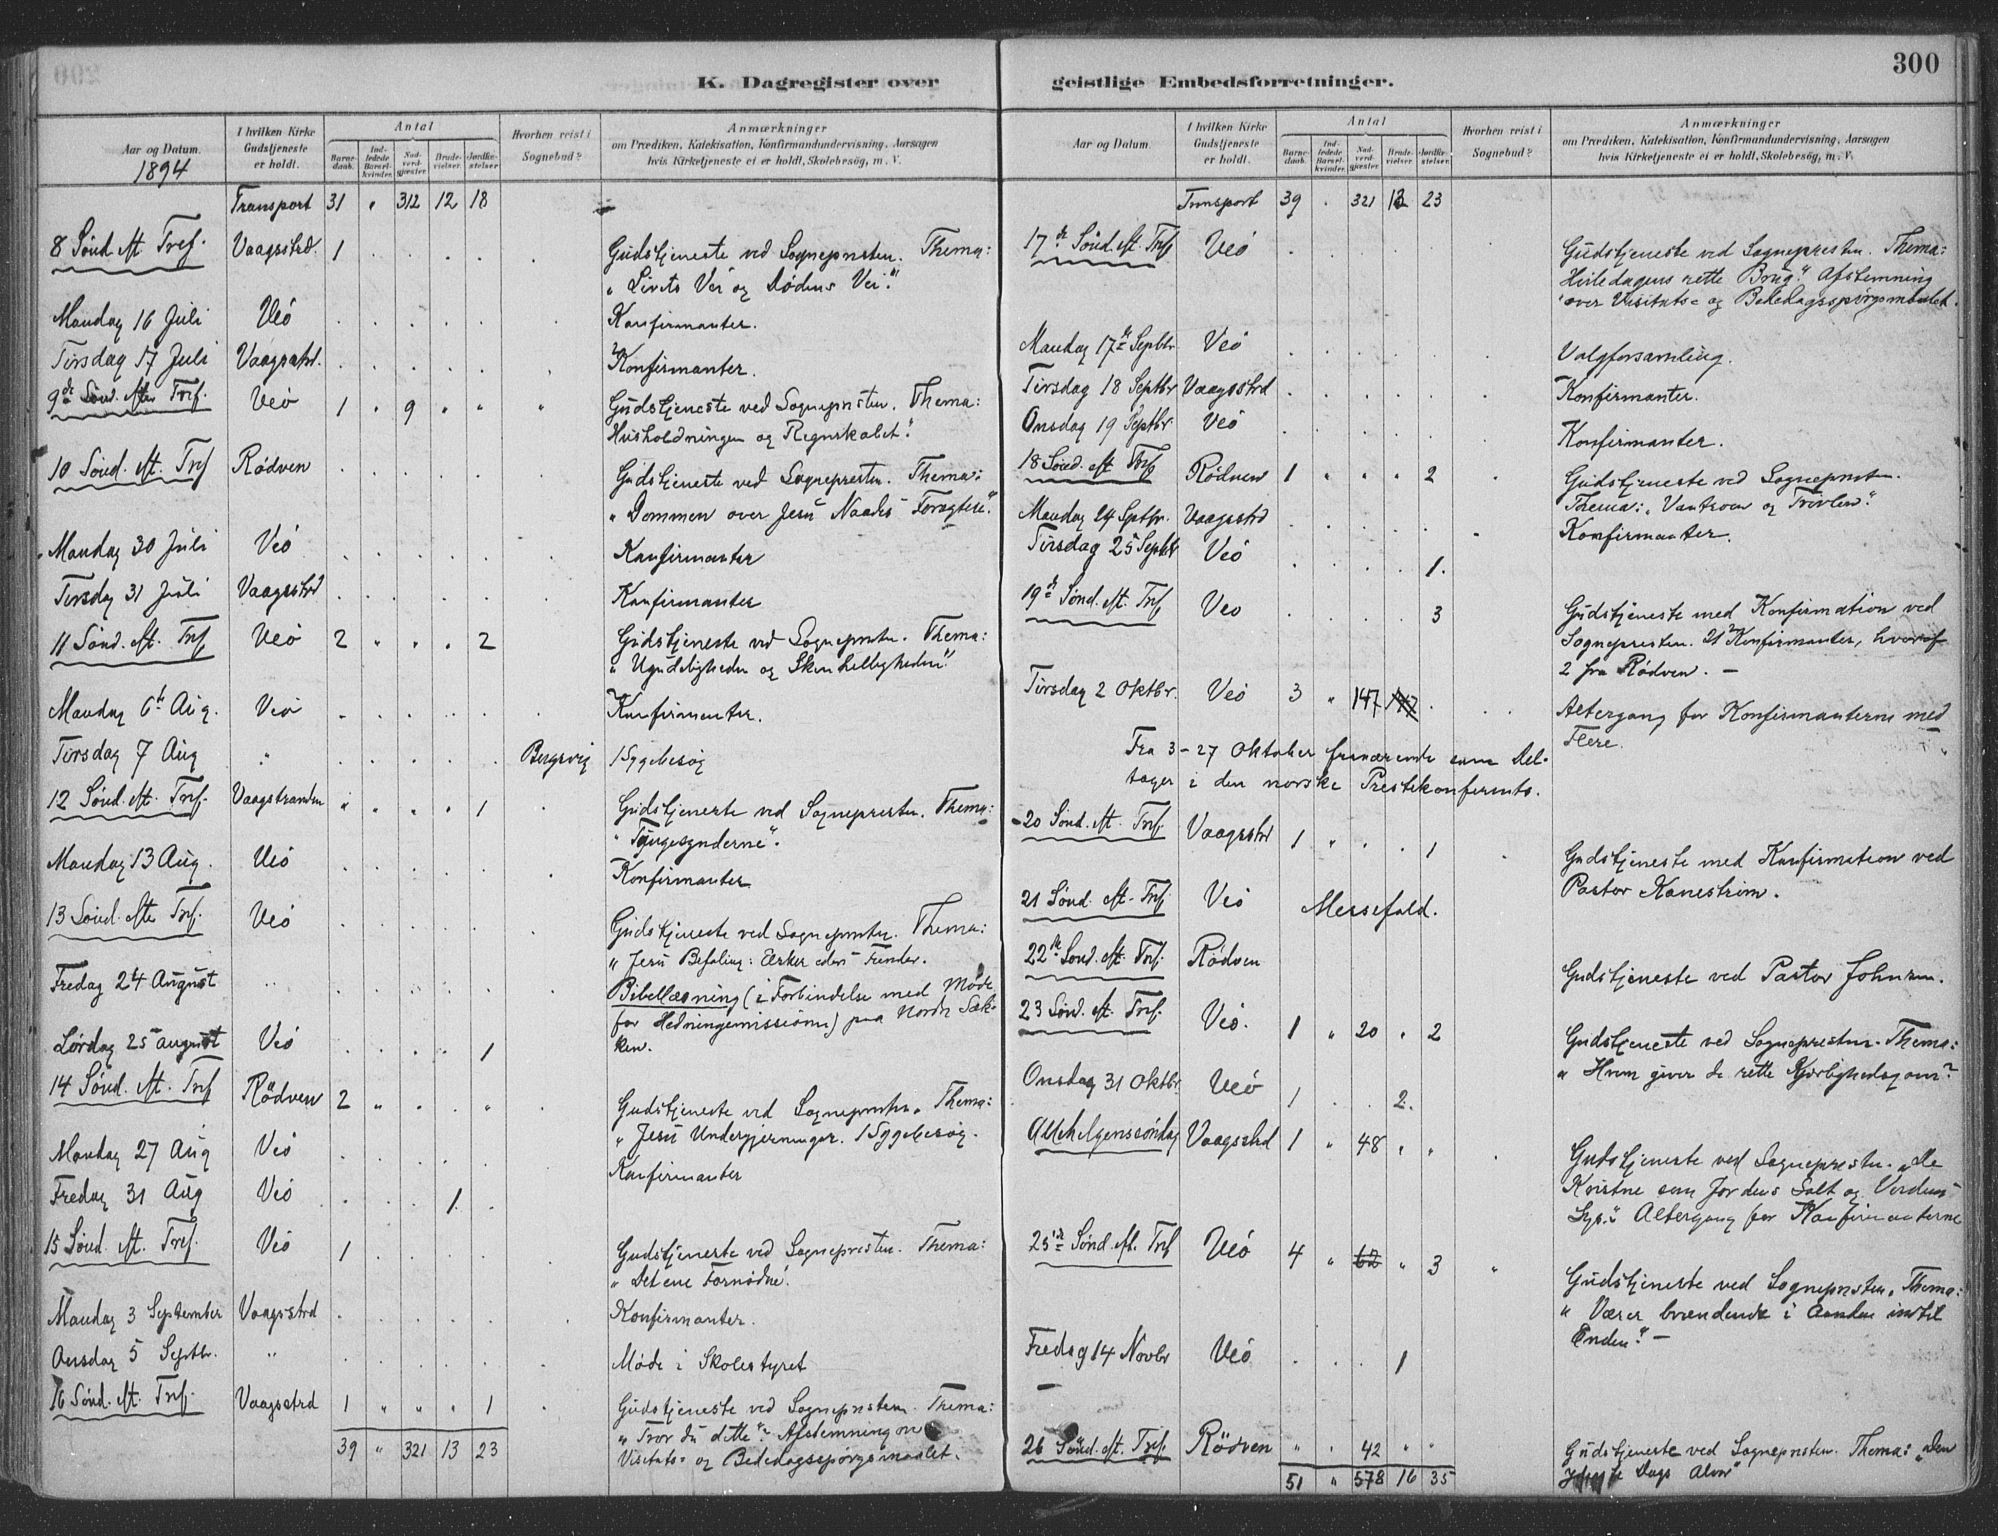 K. Dagregister over
Aar og Datum.
1894
I hvilken Kirke Gudstjeneste er holdt.
Antal
Barnedaab.
Indledede Barselkvinder.
Nadverdgjester.
Brudevielser.
Jordfæstelser.
Hvorhen reist i Sognebud?
Anmærkninger
om Prædiken, Katekisation, Konfirmandundervisning, Aarsagen
hvis Kirketjeneste ei er holdt, Skolebesög, m. V.
Transport 31 " 312 12 18
8 Sönd. eft. Tref. Vaagstrd. 1 Gudstjeneste ved Sognepresten. Thema:
"Livets Vei og Dødens Vei."
Mandag 16 Juli Veö Konfirmanter.
Tirsdag 17 Juli Vaagstrd. Konfirmanter.
9de Sönd. efter Tref. Veö 1 " 9 " " " Gudstjeneste ved Sognepresten. Thema:
Husholdningen og Regnskabet."
10 Sönd. eft. Tref Rödven Gudstjeneste ved Sognepresten. Thema:
"Dommen over Jesu Naades Foragtere."
Mandag 30 Juli Veö Konfirmanter
Tirsdag 31 Juli Vaagsstrd Konfirmanter
11 Sönd. eft. Tref Veö 2 " " " 2 Gudstjeneste ved Sognepresten. Thema:
"Ugudeligheden og Skinhelligheden"
Mandag 6te Aug. Veö Konfirmanter.
Tirsdag 7 Aug " Bergsvig 1 Sygebesøg
12 Sönd. eft. Tref. Vaagstranden " " " " 1 Gudstjeneste ved Sognepresten. Thema:
"Tungesynderne".
Mandag 13 Aug. Veö Konfirmanter
13 Sönd. efter Tref. Veö Gudstjeneste ved Sognepresten. Thema:
"Jesu Befaling: Elsker eders Fiender.
Fredag 24 August Bibellæsning (i Forbindelse med Møde
for Hedningemissionen) paa Nordre Sæk-
ken.
Lørdag 25 August Veö 1
14 Sönd. eft. Tref Rödven 2 " " Gudstjeneste ved Sognepresten. Thema:
"Jesu Undergjerninger. 1 Sygebesøg.
Mandag 27 Aug Veö Konfirmanter
Fredag 31 Aug Veö 1.
15 Sönd. eft. Tref. Veö 1 Gudstjeneste ved Sognepresten. Thema:
"Det ene Fornødne".
Mandag 3 September Vaagsstrd Konfirmanter.
Onsdag 5 Septbr. " Møde i Skolestyret
16 Sönd. eft. Tref. Vaagsstrd 1 " " " 1 Gudstjeneste ved Sognepresten. Thema:
"Tror du dette"? Afstemning om
Visitats- og Bededagsspørgsmaalet.
39 " 321 13 23
300
geistlige Embedsforretninger.
Aar og Datum.
I hvilken Kirke Gudstjeneste er holdt.
Antal
Barnedaab.
Indledede Barselkvinder.
Nadverdgjester.
Brudevielser.
Jordfæstelser.
Hvorhen reist i Sognebud?
Anmærkninger
om Prædiken, Katekisation, Konfirmandundervisning, Aarsagen
hvis Kirketjeneste ei er holdt, Skolebesög, m. V.
Transport 39 321 13 23
17de Sönd. eft. Tref Veö Gudstjeneste ved Sognepresten. Thema:
Hviledagens rette Brug". Afstemning
over Visitats- og Bededagsspørgsmaalet.
Mandag 17de Septbr Veö Valgforsamling.
Tirsdag 18 Septbr Vaagsstrd Konfirmanter.
Onsdag 19 Septbr Veö Konfirmanter.
18 Sönd. eft Tref Rödven 1 " " " 2 Gudstjeneste ved Sognepresten.
Thema: "Vantroen og Tvivlen".
Mandag 24 Septbr. Vaagsstrd Konfirmanter.
Tirsdag 25 Septbr Veö 1.
19de Sönd. eft. Tref Veö 3 Gudstjeneste med Konfirmation ved
Sognepresten. 21 Konfirmanter, hvoraf
2 fra Rødven. —
Tirsdag 2 Oktbr. Veö 3 " 147 Altergang for Konfirmanterne med
Flere.
Fra 3 - 27 Oktober fraværende som Del-
tager i den norske Prestekonferents.
20 Sönd. eft. Tref. Vaagsstrd 1 " 1 Gudstjeneste med Konfirmation ved
Pastor Kanestrøm.
21 Sönd. eft. Tref Veö Messefald.
22de Sönd. eft. Tref. Rödven Gudstjeneste ved Pastor Johnsen.
23 Sönd. eft. Tref. Veö. 1 " 20 " 2 Gudstjeneste ved Sognepresten. Thema:
"Hvem giver de rette ?
Onsdag 31 Oktbr. Veö 1 2.
Allehelgenssöndag Vaagsstrd 1 " 48 " " Gudstjeneste ved Sognepresten. "De
Kristne som Jordens Salt og Verdens
Lys." Altergang for Konfirmanterne
25de Sönd. eft. Tref Veö 4 " 62 " 3 " Gudstjeneste ved Sognepresten. Thema:
"Værer brændende i Aanden indtil
Enden". —
Fredag 14 Novbr Veö 1
26 Sönd. eft. Tref. Rödven " " 42 " " Gudstjeneste ved Sognepresten. Thema: "Den
Dags Alvor"
51 " 578 16 35